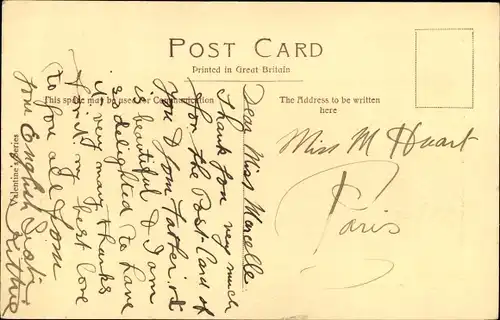 POST CARD
Printed in Great Britain
This space may be used for Communication
The Address to be written
here
Valentine's Series
Dear Miss Marcelle
Thank you very much
for the Post-Card of
you & your Father, it
is beautiful & I am
so delighted to have
it, very many thanks
& with my best love
to you all from
your English Sister
Miss M Huart
Paris